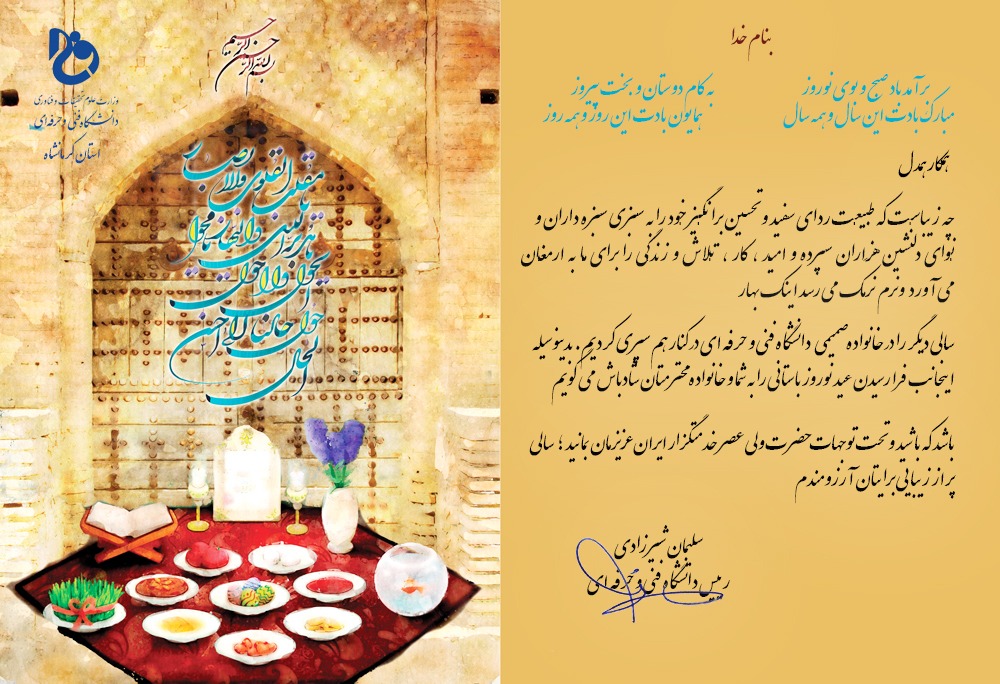 بسم الله الرحمن الرحیم
وزارت علوم تحقیقات و فناوری
دانشگاه فنی و حرفه ای
استان کرمانشاه
یا مقلب القلوب والابصار
یا مدبر اللیل والنهار یا محول
الحول والاحوال
حول حالنا الی احسن
الحال
بنام خدا
برآمد باد صبح و بوی نوروز به کام دوستان و بخت پیروز
مبارک بادت این سال و همه سال همایون بادت این روز و همه روز
همکار همدل
چه زیباست که طبیعت ردای سفید و تحسین برانگیز خود را به سبزی سبزه داران و
نوای دلنشین هزاران سپرده و امید ، کار ، تلاش و زندگی را برای ما به ارمغان
می آورد و نرم نرمک می رسد اینک بهار
سالی دیگر را در خانواده صمیمی دانشگاه فنی و حرفه ای در کنار هم سپری کردیم. بدینوسیله
اینجانب فرا رسیدن عید نوروز باستانی را به شما و خانواده محترمتان شادباش می گویم
باشد که باشید و تحت توجهات حضرت ولی عصر خدمتگزار ایران عزیزمان بمانید ؛ سالی
پر از زیبایی برایتان آرزومندم
سلیمان شیرزادی
رییس دانشگاه فنی و حرفه ای